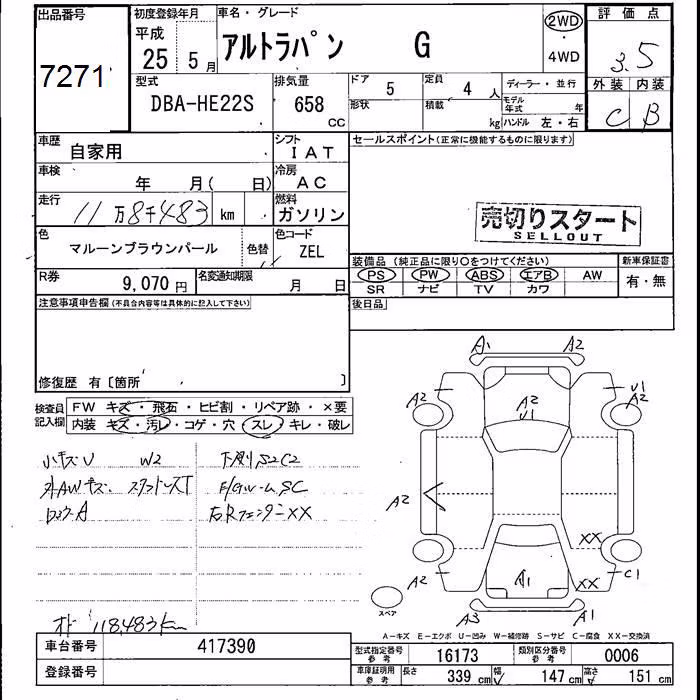 出品番号
7271
初度登録年月
平成
25 5月
車名・グレード
アルトラパン G
2WD
・
4WD
評価点
3.5
外装 内装
C B
型式
DBA-HE22S
排気量
658
CC
ドア
5
定員
4 人
形状
積載
kg
ディーラー・並行
モデル年式 年
ハンドル 左・右
車歴
自家用
シフト
IAT
セールスポイント(正常に機能するものに限ります)
車検
年 月( 日)
冷房
AC
走行
11万8千483 km
燃料
ガソリン
売切りスタート
SELLOUT
色
マルーンブラウンパール
色替
色コード
ZEL
装備品(純正品に限り○をつけてください)
PS PW ABS エアB AW
SR ナビ TV カワ
新車保証書
有・無
R券
9,070円
名変通知期限
月 日
後日品
注意事項申告欄(不具合内容等は具体的に記入して下さい)
修復歴 有〔箇所 〕
検査員記入欄
FW キズ・飛石・ヒビ割・リペア跡・×要
内装 キズ・汚レ・コゲ・穴・スレ・キレ・破レ
小キズU W2
下廻りS2C2
外AWキズ
SC
右RフェンダーXX
オド 118,483km
A1 A2
A2 A2 U1 U1 A2
A2
XX
A2 A1 XX C1
スペア
A3 A1
A-キズ E-エクボ U-凹み W-補修跡 S-サビ C-腐食 XX-交換済
車台番号
417390
登録番号
型式指定番号
参考
16173
類別区分番号
参考
0006
車庫証明用
参考
長さ 339cm 幅 147cm 高さ 151cm